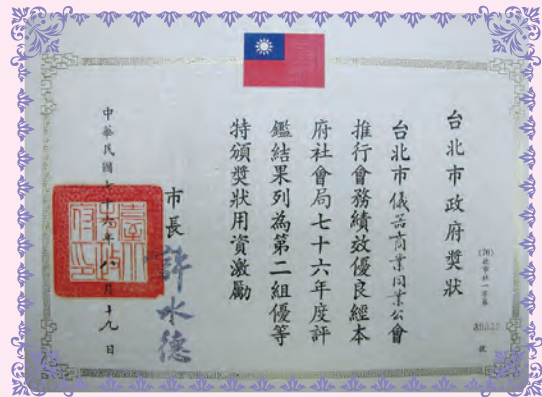 台北市政府獎狀
(76)北市社一字第
號
台北市儀器商業同業公會
推行會務績效優良經本
府社會局七十六年度評
鑑結果列為第二組優等
特頒獎狀用資激勵
市長
許水德
中華民國七十六年八月十九日